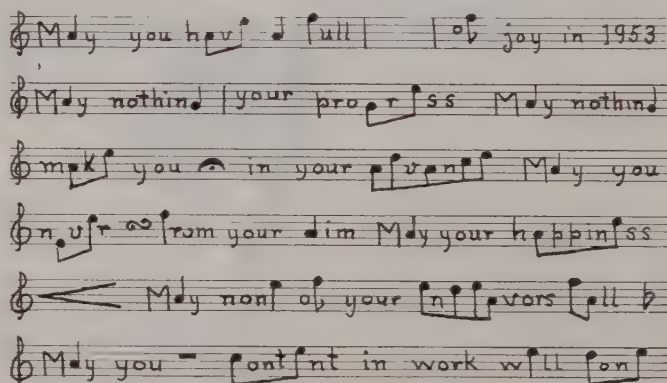 May you have a full | | of joy in 1953
May nothing | your progress May nothing
make you 𝄐 in your advance May you
never ~ from your aim May your happiness
< May none of your endeavors fall ♭
May you – content in work well done